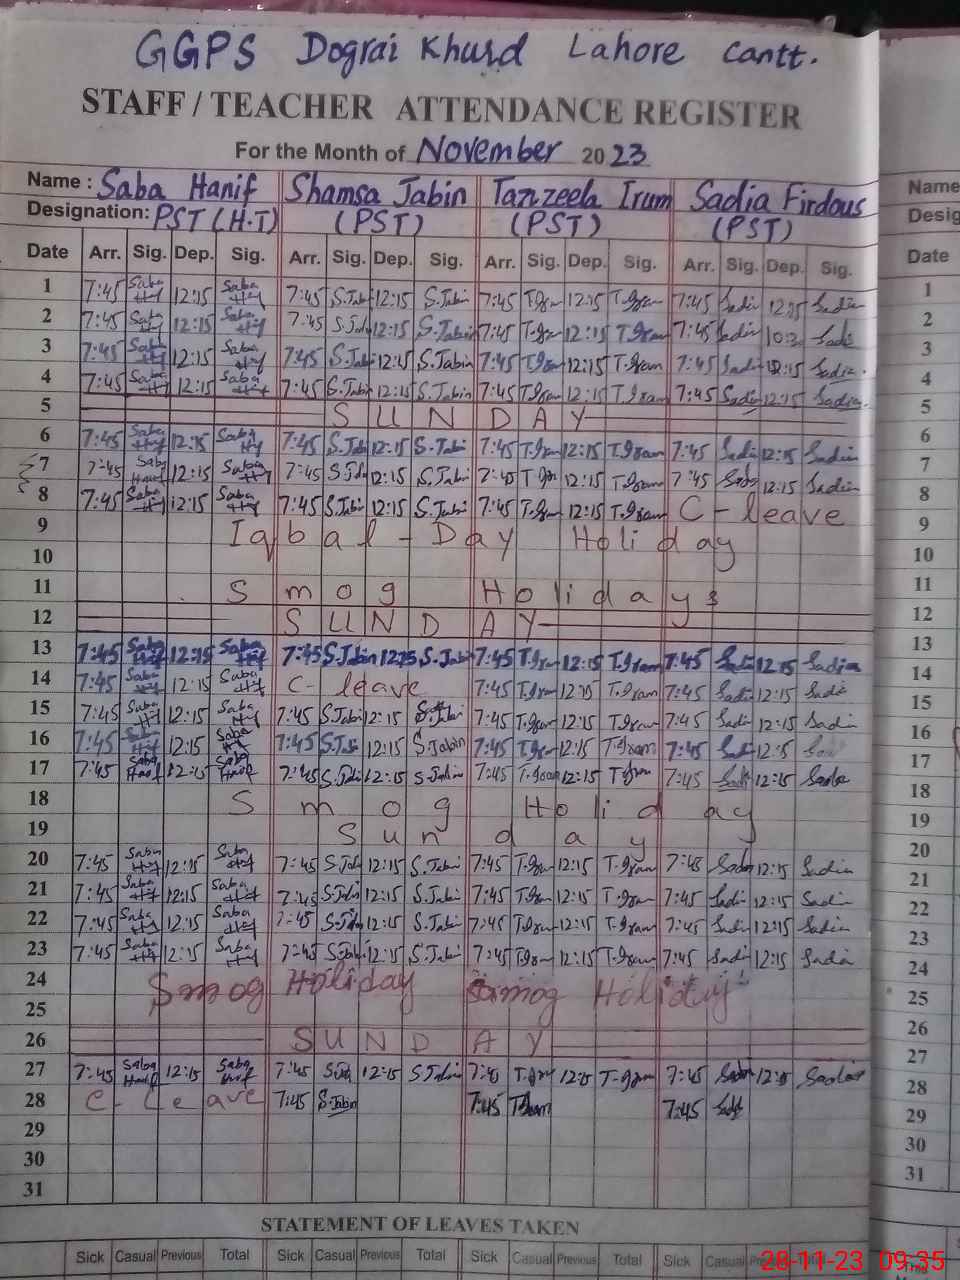 GGPS Dograi Khurd Lahore Cantt.
STAFF / TEACHER ATTENDANCE REGISTER
For the Month of November 2023
Name : Saba Hanif Shamsa Jabin Tanzeela Irum Sadia Firdous
Designation: PST (H.T) (PST) (PST) (PST)
Date Arr. Sig. Dep. Sig. Arr. Sig. Dep. Sig. Arr. Sig. Dep. Sig. Arr. Sig. Dep. Sig.
1 7:45 Saba 12:15 Saba 7:45 S.Jabin 12:15 S.Jabin 7:45 T.Iram 12:15 T.Iram 7:45 Sadia 12:15 Sadia
2 7:45 Saba 12:15 Saba 7:45 S.Jabin 12:15 S.Jabin 7:45 T.Iram 12:15 T.Iram 7:45 Sadia Sadia
3 7:45 Saba 12:15 Saba 7:45 S.Jabin 12:15 S.Jabin 7:45 T.Iram 12:15 T.Iram 7:45 Sadia 12:15 Sadia
4 7:45 Saba 12:15 Saba 7:45 S.Jabin 12:15 S.Jabin 7:45 T.Iram 12:15 T.Iram 7:45 Sadia 12:15 Sadia
5 SUNDAY
6 7:45 Saba 12:15 Saba 7:45 S.Jabin 12:15 S.Jabin 7:45 T.Iram 12:15 T.Iram 7:45 Sadia 12:15 Sadia
7 7:45 Saba Hanif 12:15 Saba 7:45 S.Jabin 12:15 S.Jabin 7:45 T.Iram 12:15 T.Iram 7:45 Sadia 12:15 Sadia
8 7:45 Saba 12:15 Saba 7:45 S.Jabin 12:15 S.Jabin 7:45 T.Iram 12:15 T.Iram C-leave
9 Iqbal-Day Holiday
10
11 Smog Holidays
12 SUNDAY
13 7:45 Saba 12:15 Saba 7:45 S.Jabin 12:15 S.Jabin 7:45 T.Iram 12:15 T.Iram 7:45 Sadia 12:15 Sadia
14 7:45 Saba 12:15 Saba C-leave 7:45 T.Iram 12:15 T.Iram 7:45 Sadia 12:15 Sadia
15 7:45 Saba 12:15 Saba 7:45 S.Jabin 12:15 S.Jabin 7:45 T.Iram 12:15 T.Iram 7:45 Sadia 12:15 Sadia
16 7:45 Saba 12:15 Saba 7:45 S.Jabin 12:15 S.Jabin 7:45 T.Iram 12:15 T.Iram 7:45 Sadia 12:15
17 7:45 Saba Hanif 12:15 Saba Hanif 7:45 S.Jabin 12:15 S.Jabin 7:45 T.Iram 12:15 T.Iram 7:45 Sadia 12:15 Sadia
18 Smog Holiday
19 Sunday
20 7:45 Saba 12:15 Saba 7:45 S.Jabin 12:15 S.Jabin 7:45 T.Iram 12:15 T.Iram 7:45 Sadia 12:15 Sadia
21 7:45 Saba 12:15 Saba 7:45 S.Jabin 12:15 S.Jabin 7:45 T.Iram 12:15 T.Iram 7:45 Sadia 12:15 Sadia
22 7:45 Saba 12:15 Saba 7:45 S.Jabin 12:15 S.Jabin 7:45 T.Iram 12:15 T.Iram 7:45 Sadia 12:15 Sadia
23 7:45 Saba 12:15 Saba 7:45 S.Jabin 12:15 S.Jabin 7:45 T.Iram 12:15 T.Iram 7:45 Sadia 12:15 Sadia
24 Smog Holiday Smog Holiday
25
26 SUNDAY
27 7:45 Saba Hanif 12:15 Saba Hanif 7:45 S.Jabin 12:15 S.Jabin 7:45 T.Iram 12:15 T.Iram 7:45 Sadia 12:15 Sadia
28 C-Leave 7:45 S.Jabin 7:45 T.Iram 7:45 Sadia
29
30
31
STATEMENT OF LEAVES TAKEN
Sick Casual Previous Total Sick Casual Previous Total Sick Casual Previous Total Sick Casual
28-11-23 09:35
Name
Desig
Date
1
2
3
4
5
6
7
8
9
10
11
12
13
14
15
16
17
18
19
20
21
22
23
24
25
26
27
28
29
30
31